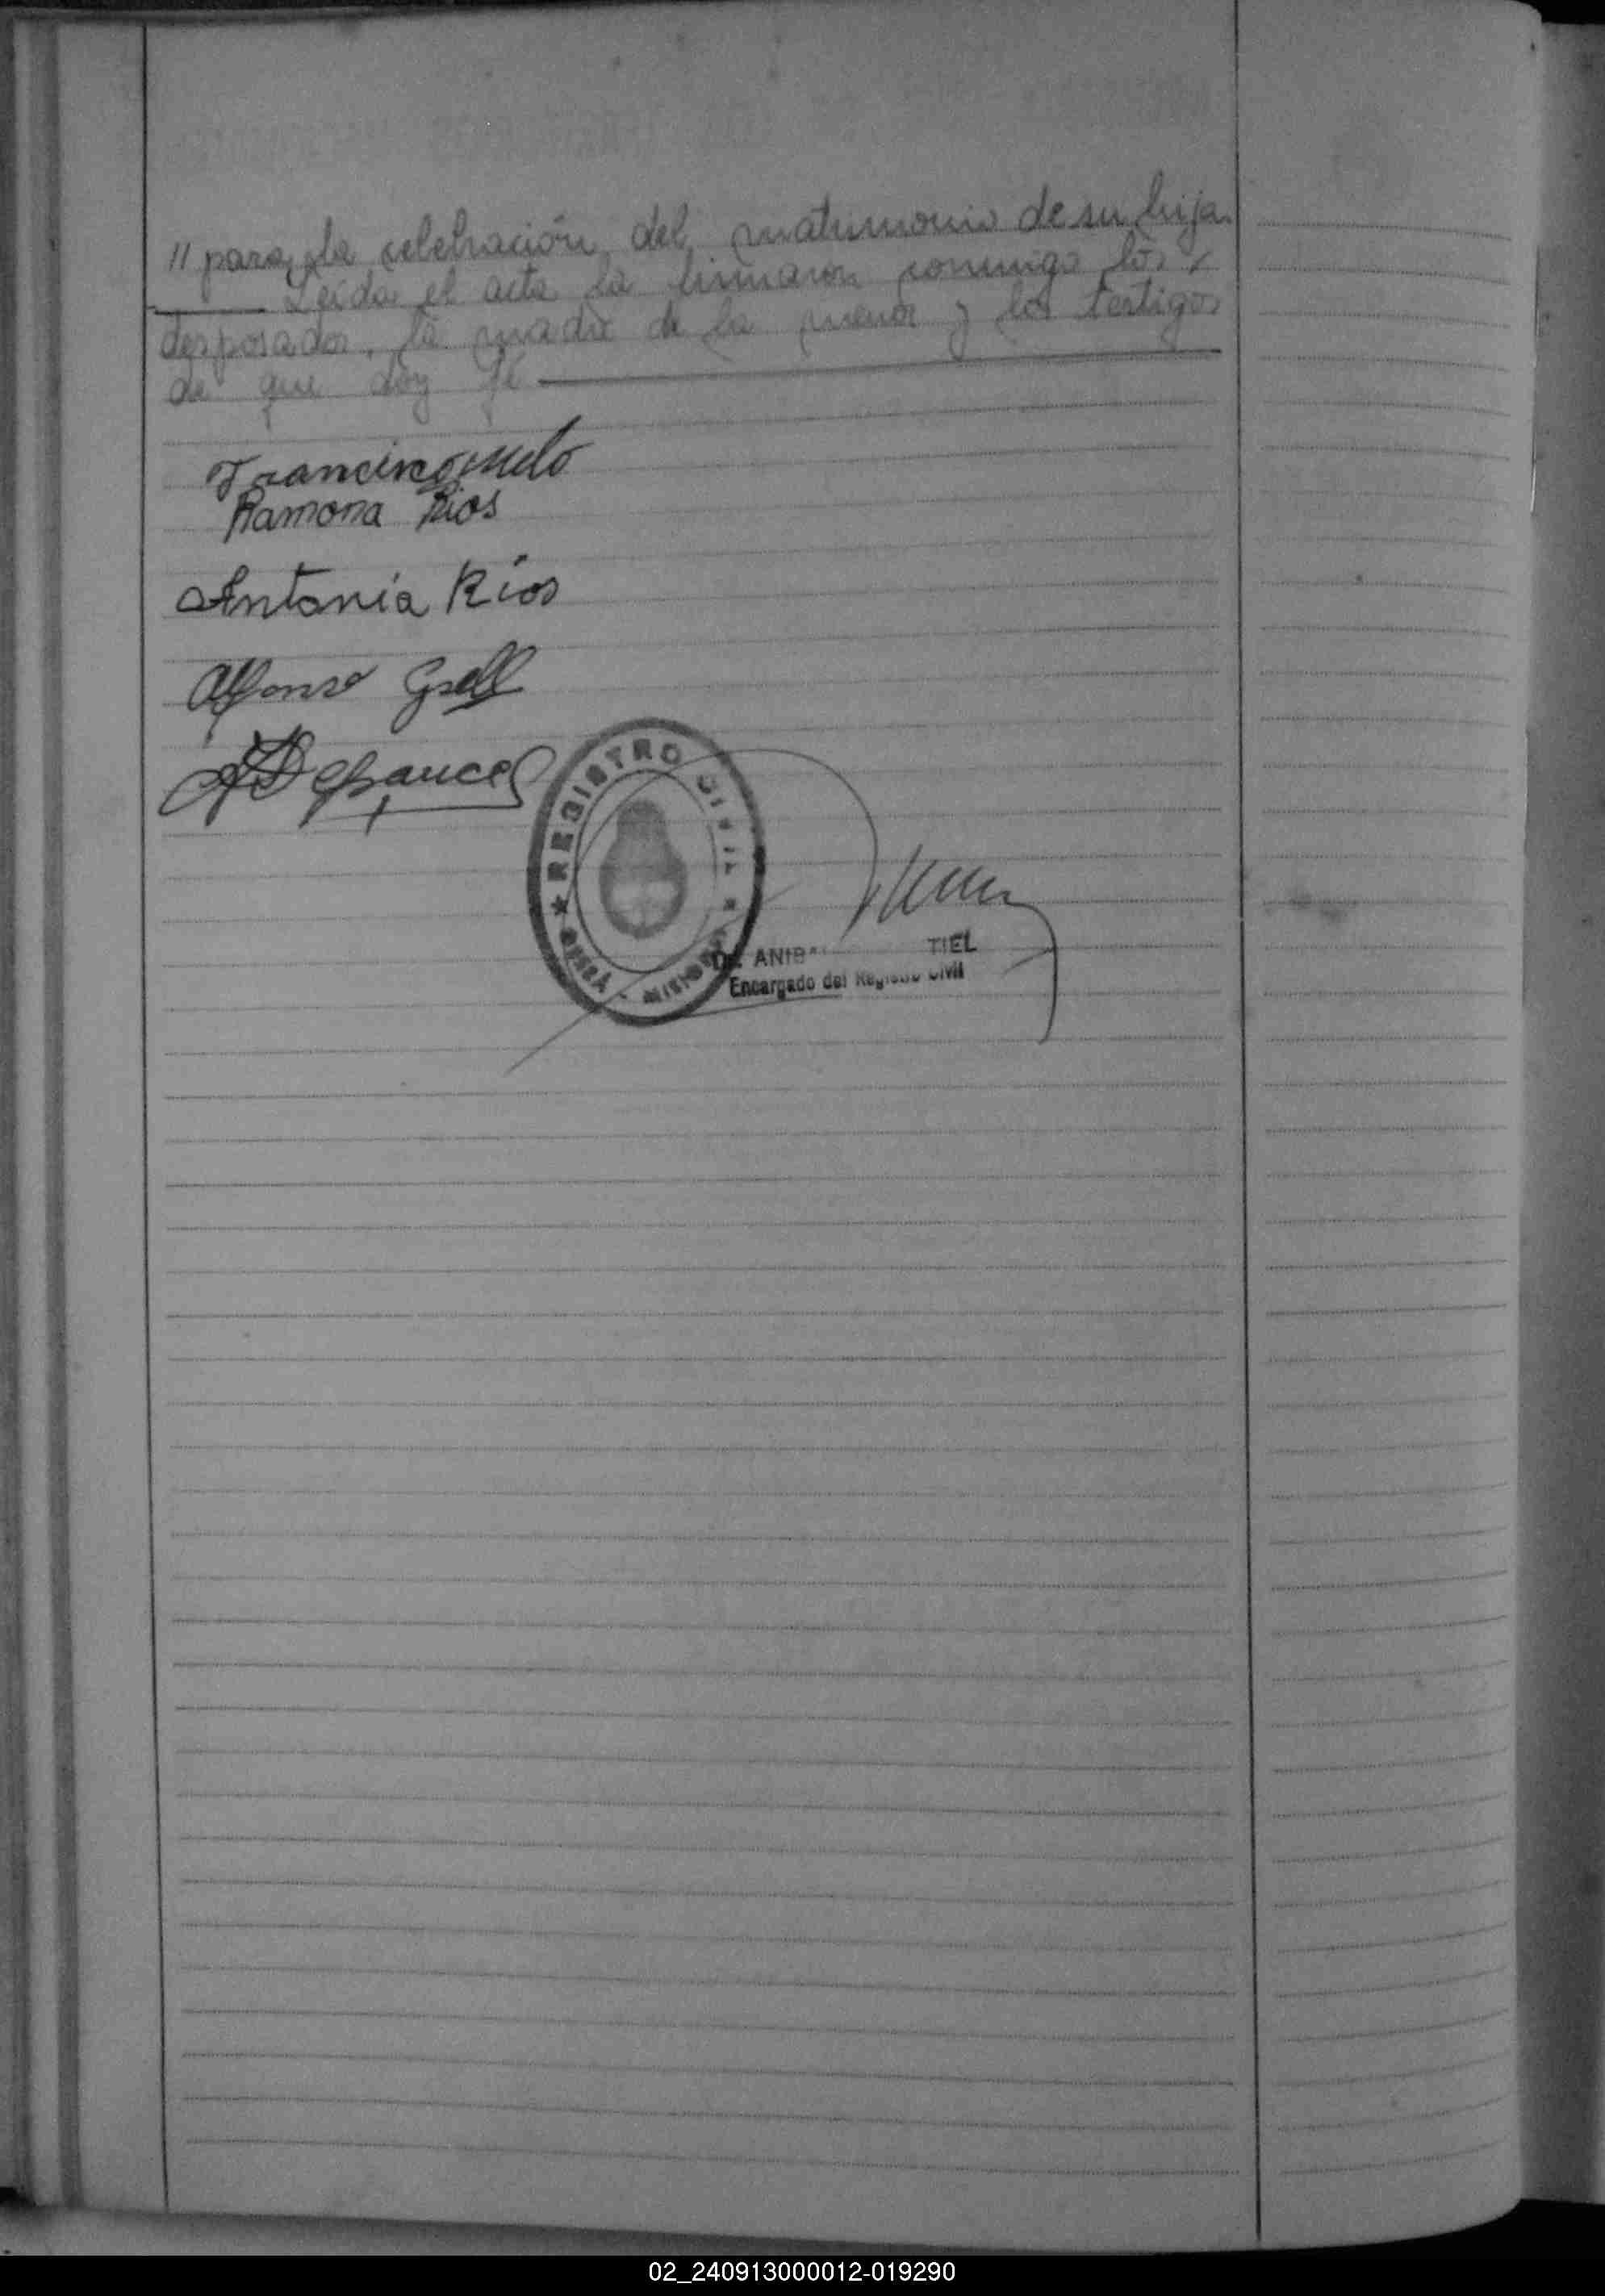 // para la celebración del matrimonio de su hija.
Leida el acta la firmaron conmigo los
desposados, la madre de la menor y los testigos
de que doy fé
Francisco Melo
Ramona Rios
Antonia Rios
Alfonso Gsell
REGISTRO CIVIL
OBERÁ - MISIONES
Dr. ANIB TIEL
Encargado del Registro Civil
02_240913000012-019290